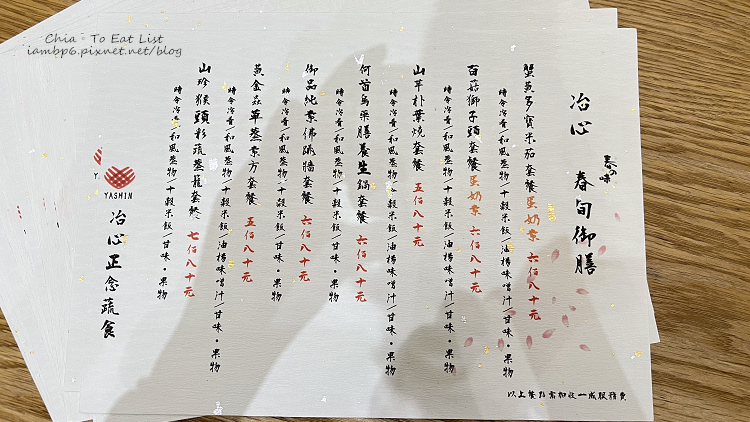 Chia - To Eat List
iambp6.pixnet.net/blog
冶心 春の味 春旬御膳
蟹黃多寶米茄套餐 蛋奶素 六佰八十元
時令冷肴/和風蒸物/十穀米飯/油揚味噌汁/甘味•果物
百菇獅子頭套餐 蛋奶素 六佰八十元
時令冷肴/和風蒸物/十穀米飯/油揚味噌汁/甘味•果物
山草朴葉燒套餐 五佰八十元
時令冷肴/和風蒸物/十穀米飯/油揚味噌汁/甘味•果物
何首烏藥膳養生鍋套餐 六佰八十元
時令冷肴/和風蒸物/十穀米飯/甘味•果物
御品純素佛跳牆套餐 六佰八十元
時令冷肴/和風蒸物/十穀米飯/甘味•果物
黃金蟲草蒸素方套餐 五佰八十元
時令冷肴/和風蒸物/十穀米飯/油揚味噌汁/甘味•果物
山珍猴頭杉蒸籠套餐 七佰八十元
時令冷肴/和風蒸物/十穀米飯/甘味•果物
YASHIN
冶心正念蔬食
以上餐點需加收一成服務費